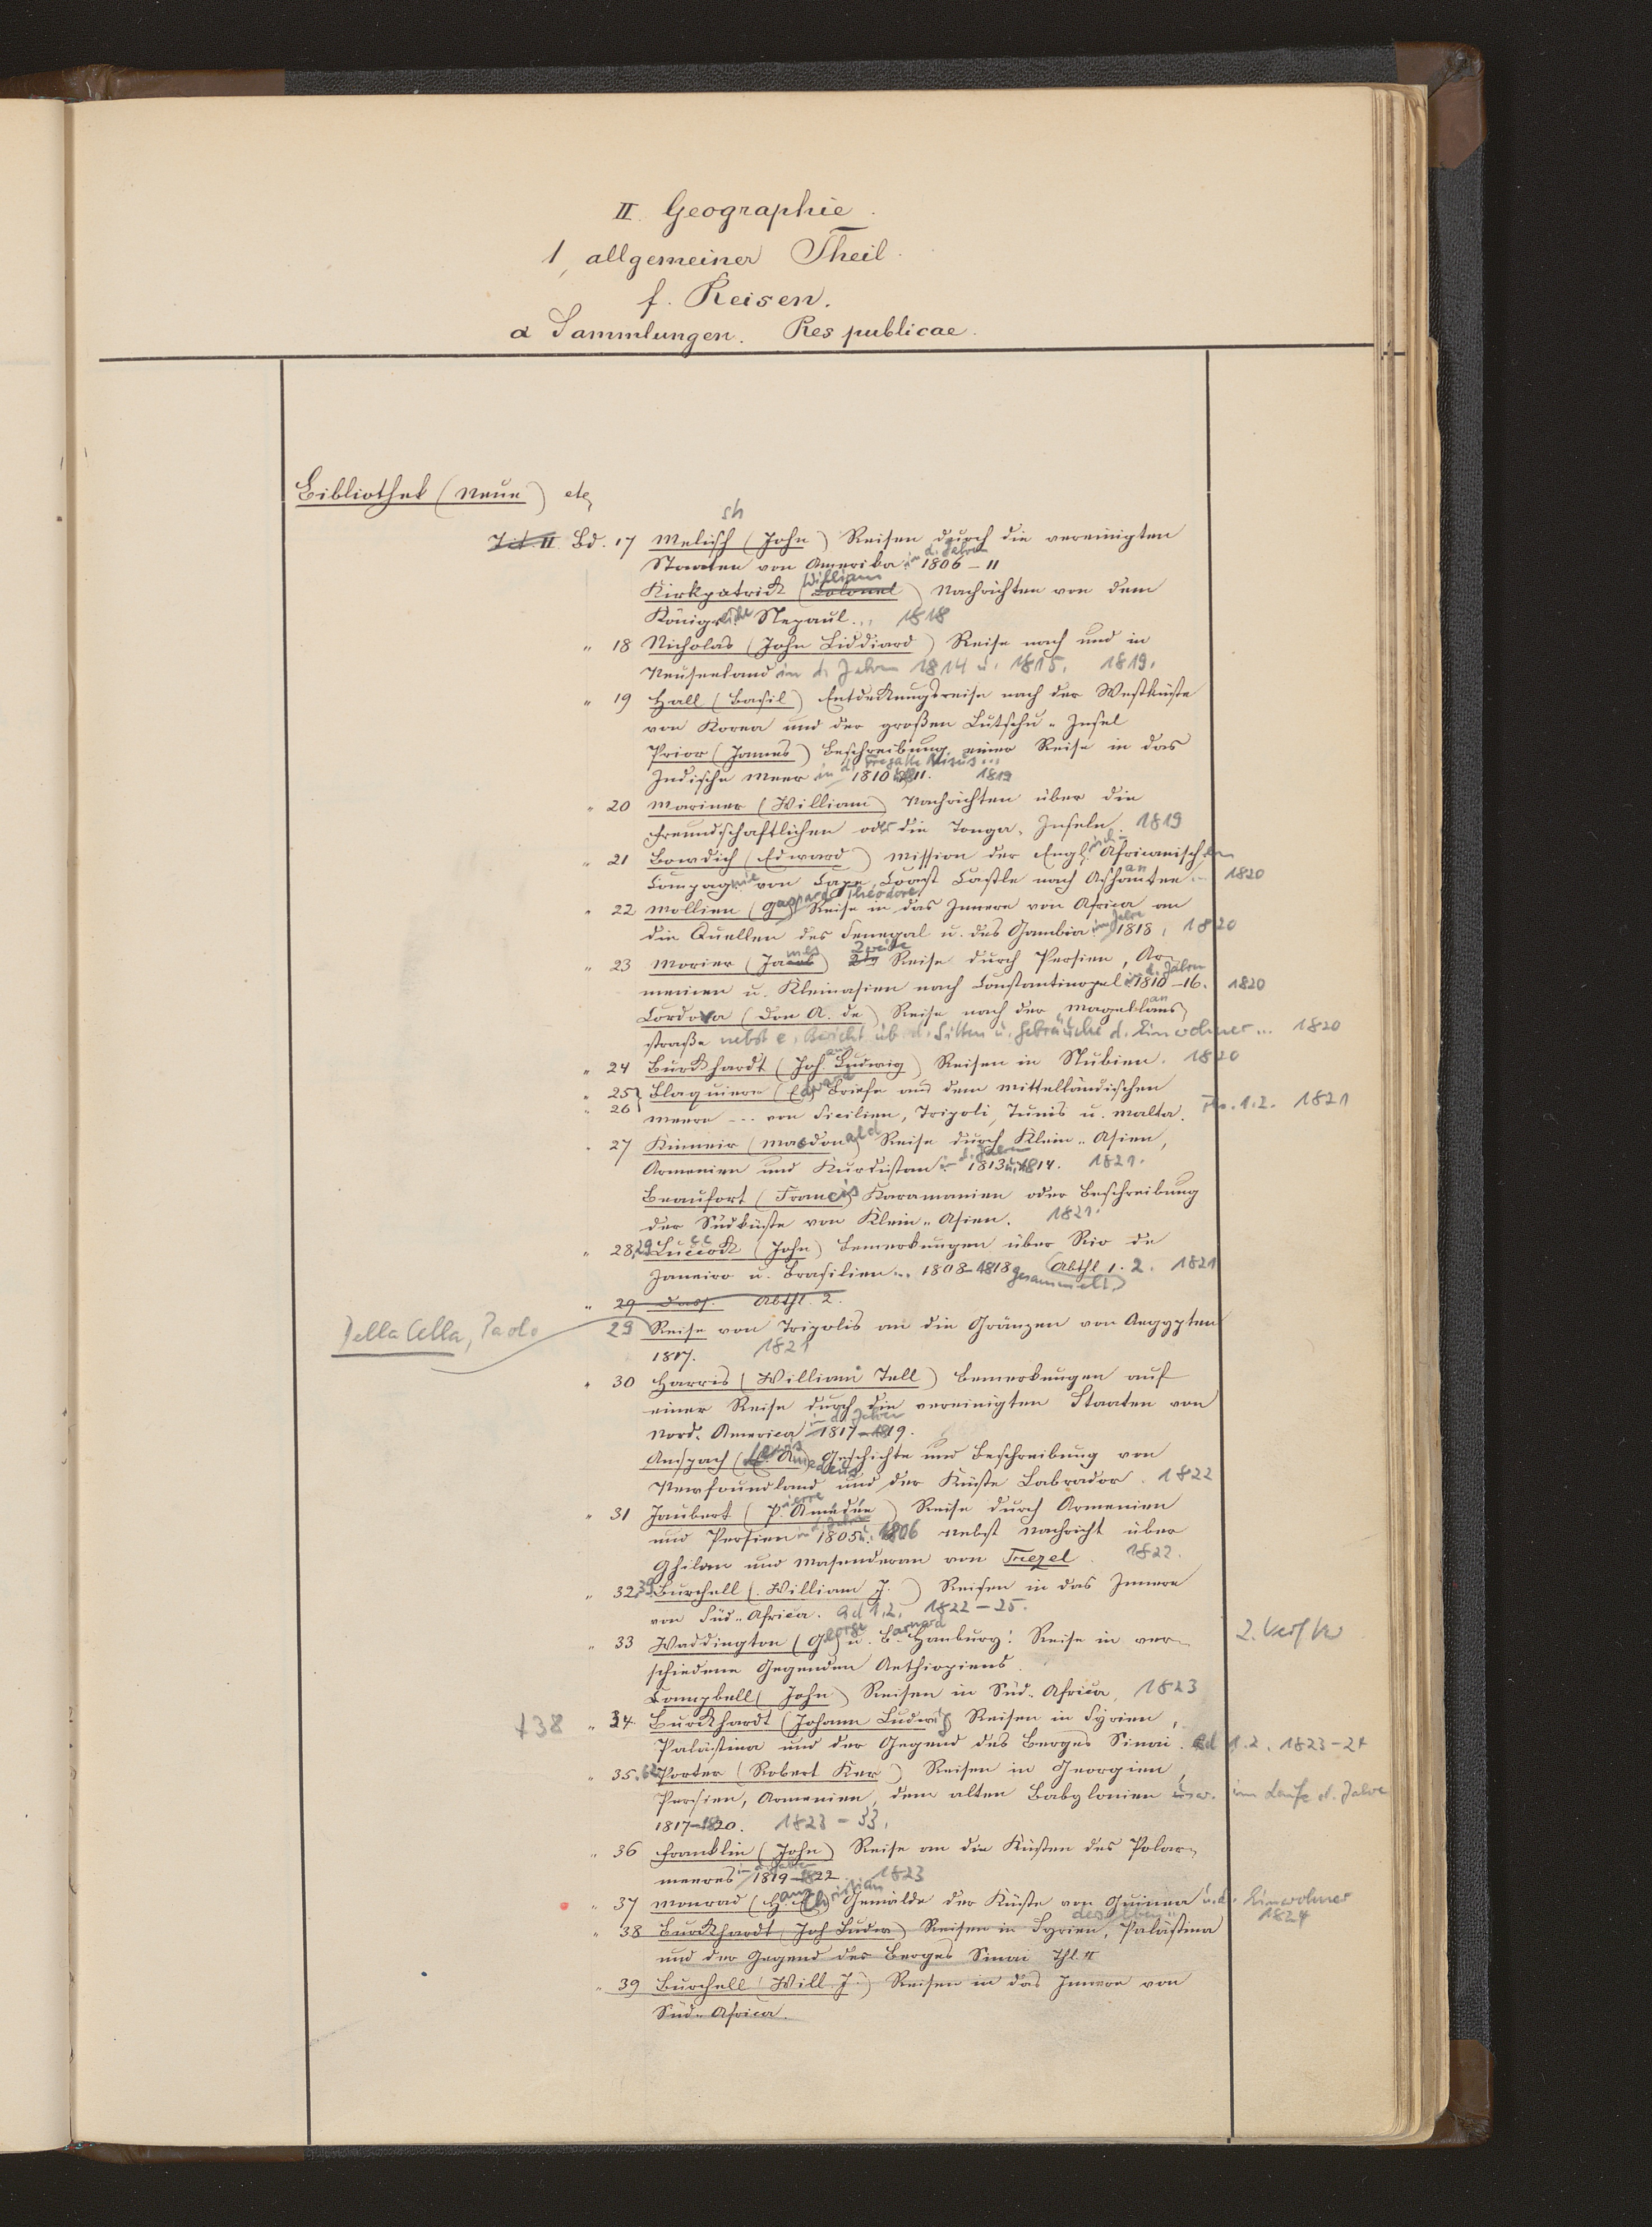 II. Geographie.
1, allgemeiner Theil.
f. Reisen.
α Sammlungen. Res publicae.
Bibliothek (Neue) etc
Bd. 17 Melisch (John) Reisen durch die vereinigten
sh
Staaten von Amerika in d. Jahren 1806–11
Kirkpatrick (Colonel) Nachrichten von dem
William
Königreiche Nepaul... 1818
" 18 Nicholas (John Liddiard) Reise nach und in
Neuseeland in d. Jahren 1814 u. 1815. 1819.
" 19 Hall (Basil) Entdeckungsreise nach der Westküste
von Korea und der großen Lutschu-Insel
Prior (James) Beschreibung einer Reise in das
Indische Meer in d. Fregatte Nisus... 1810 u. 11. 1819
" 20 Mariner (William) Nachrichten über die
freundschaftlichen oder die Tonga-Inseln 1819
" 21 Bowdich (Edward) Mission der Engl. Africanischen
Compagnie von Cape Coast Castle nach Ashantee ... 1820
" 22 Mollien (Gaspard Théodore) Reise in das Innere von Africa an
die Quellen des Senegal u. des Gambia im Jahre 1818, 1820
" 23 Morier (James) Zweite Reise durch Persien, Ar-
menien u. Kleinasien nach Constantinopel in d. Jahren 1810–16. 1820
Cordova (Don A. de) Reise nach der Magellans
straße nebst e. Bericht üb. d. Sitten u. Gebräuche d. Einwohner ... 1820
" 24 Burckhardt (Joh. Ludwig) Reisen in Nubien. 1820
" 25 } Blaquiere (Edward) Briefe aus dem mittelländischen
" 26 Meere --- von Sicilien, Tripoli, Tunis u. Malta. Th. 1.2. 1821
" 27 Kinneir (Macdonald) Reise durch Klein-Asien,
Armenien und Kurdistan in d. Jahren 1813 u. 1814. 1821.
Beaufort (Francis) Karamanien oder Beschreibung
der Südküste von Klein-Asien. 1821.
" 28,29 Luccock (John) Bemerkungen über Rio de
Janeiro u. Brasilien... 1808–1818 gesammelt. Abthl 1. 2. 1821
" 29 Dass. Abthl. 2.
Della Cella, Paolo
29 Reise von Tripolis an die Gränzen von Aegypten
1817. 1821
" 30 Harris (William Tell) Bemerkungen auf
einer Reise durch die vereinigten Staaten von
Nord-America in d. Jahren 1817–1819.
Anspach (Lewis Amadeus) Geschichte und Beschreibung von
Newfoundland und der Küste Labrador. 1822
" 31 Jaubert (Pierre Amédée) Reise durch Armenien
und Persien in d. Jahren 1805 u. 1806 nebst Nachricht über
Ghilan und Masenderan von Trezel. 1822.
" 32,39 Burchell (William J.) Reisen in das Innere
von Süd-Africa. Bd 1.2. 1822–25.
" 33 Waddington (George) u. Barnard Hanburg: Reise in ver-
schiedene Gegenden Aethiopiens.
Campbell (John) Reisen in Süd-Africa, 1823
+38 " 34. Burckhardt (Johann Ludwig) Reisen in Syrien,
Palästina und der Gegend des Berges Sinai. Bd 1.2. 1823–24
" 35. Porter (Robert Ker) Reisen in Georgien,
Persien, Armenien, dem alten Babylonien usw. im Laufe d. Jahre
1817–1820. 1823–33.
" 36 Franklin (John) Reise an die Küsten des Polar-
meeres in d. Jahren 1819–1822 1823
" 37 Monrad (Hans Christian) Gemälde der Küste von Guinea u. d. Einwohner
derselben 1824
" 38 Burckhardt (Joh Ludw) Reisen in Syrien, Palästina
und der Gegend des Berges Sinai Thl. II
" 39 Burchell (Will J.) Reisen in das Innere von
Süd-Africa.